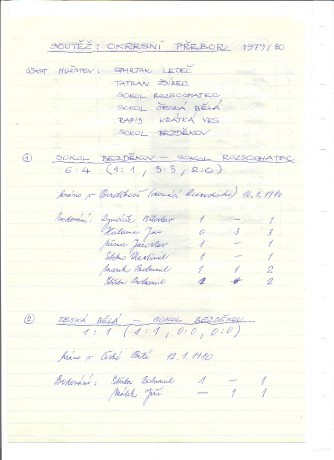 SOUTĚŽ: OKRESNÍ PŘEBOR 1979/80
ÚČAST MUŽSTEV: SPARTAK LEDEČ
TATRAN ŽDÍREC
SOKOL ROZSOCHATEC
SOKOL ČESKÁ BĚLÁ
RAPID KRÁTKÁ VES
SOKOL BEZDĚKOV
① SOKOL BEZDĚKOV – SOKOL ROZSOCHATEC
6:4 (1:1, 3:3, 2:0)
Hráno v Bezděkově 1980
Bodování: 1 – 1
Jan 0 3 3
Jaroslav 1 – 1
1 – 1
Bohumil 1 1 2
Bohumil 2
② ČESKÁ BĚLÁ – SOKOL BEZDĚKOV
1:1 (1:1, 0:0, 0:0)
Hráno v České Bělé 12.1.1980
Bodování: Bohumil 1 – 1
Jiří – 1 1